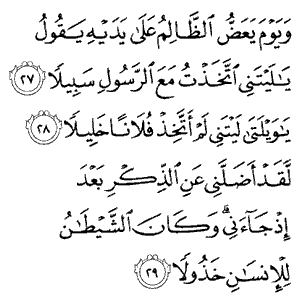 وَيَوْمَ يَعَضُّ ٱلظَّالِمُ عَلَىٰ يَدَيْهِ يَقُولُ
يَٰلَيْتَنِى ٱتَّخَذْتُ مَعَ ٱلرَّسُولِ سَبِيلًا ٢٧
يَٰوَيْلَتَىٰ لَيْتَنِى لَمْ أَتَّخِذْ فُلَانًا خَلِيلًا ٢٨
لَّقَدْ أَضَلَّنِى عَنِ ٱلذِّكْرِ بَعْدَ
إِذْ جَآءَنِى ۗ وَكَانَ ٱلشَّيْطَٰنُ
لِلْإِنسَٰنِ خَذُولًا ٢٩